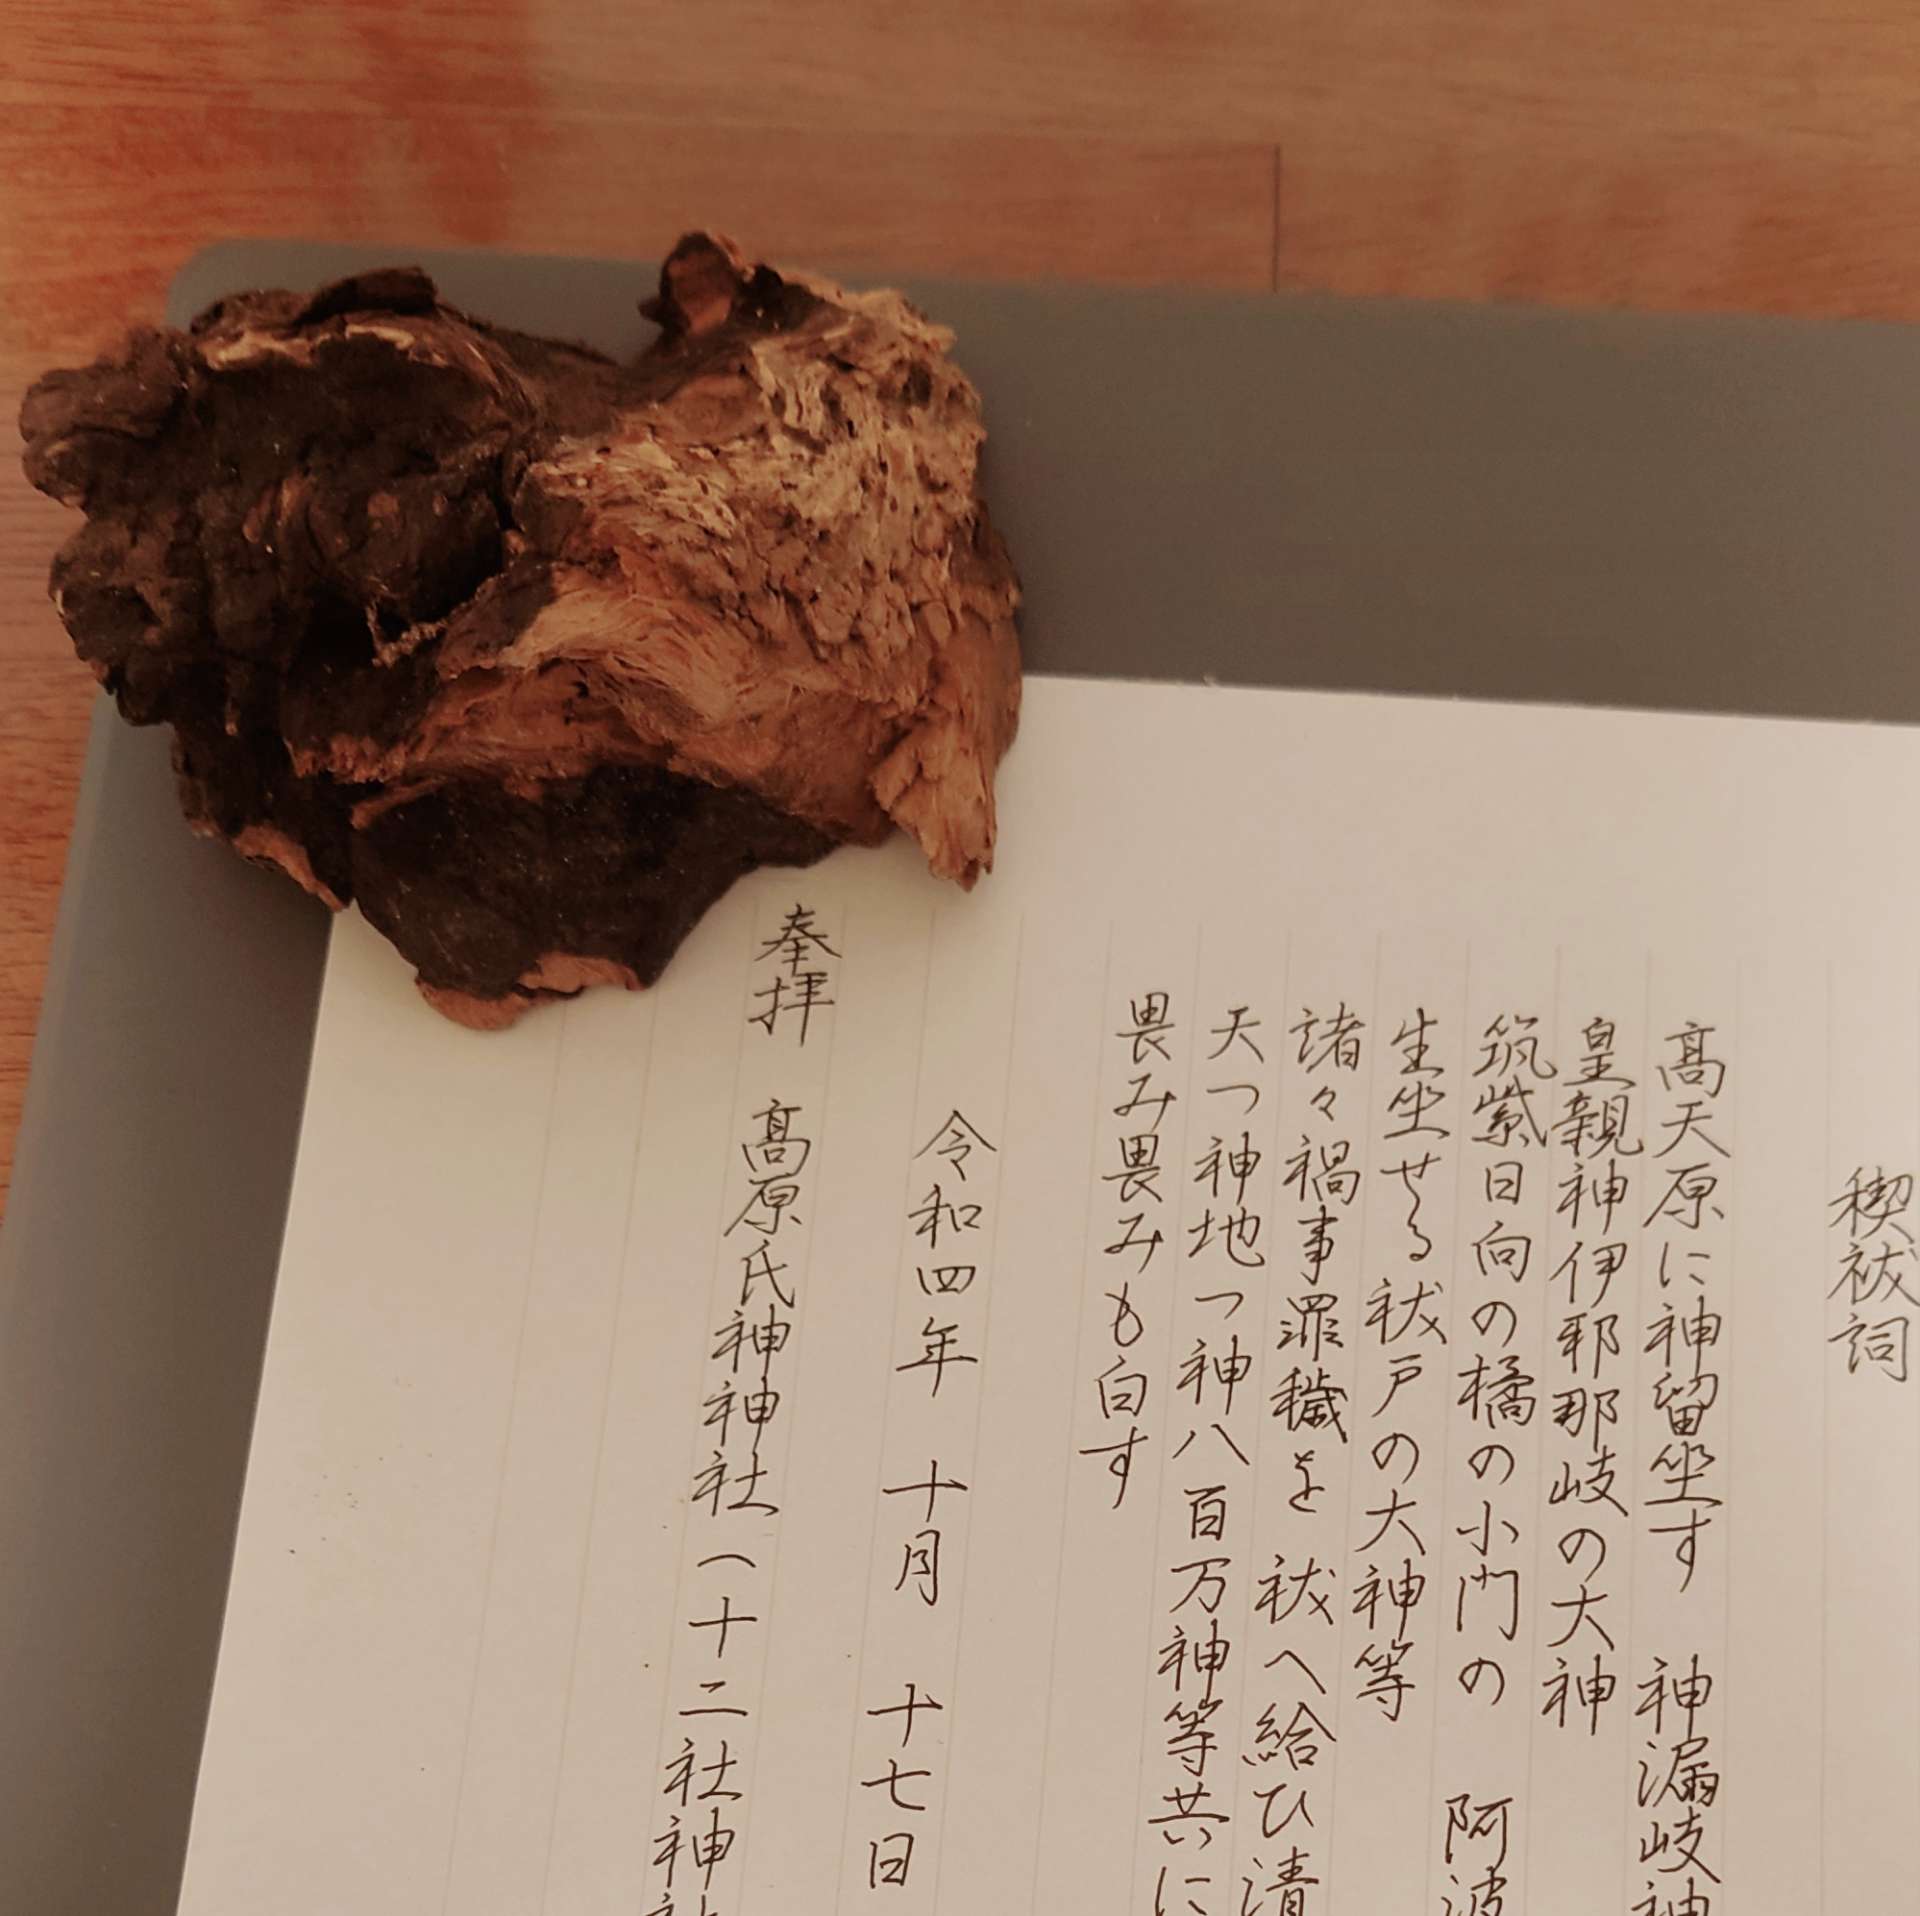 禊祓詞
高天原に神留坐す 神漏岐神
皇親神伊邪那岐の大神
筑紫日向の橘の小門の 阿波
生坐せる祓戸の大神等
諸々禍事罪穢を 祓へ給ひ清
天つ神地つ神八百万神等共に
畏み畏みも白す
令和四年 十月 十七日
奉拝 髙原氏神神社(十二社神